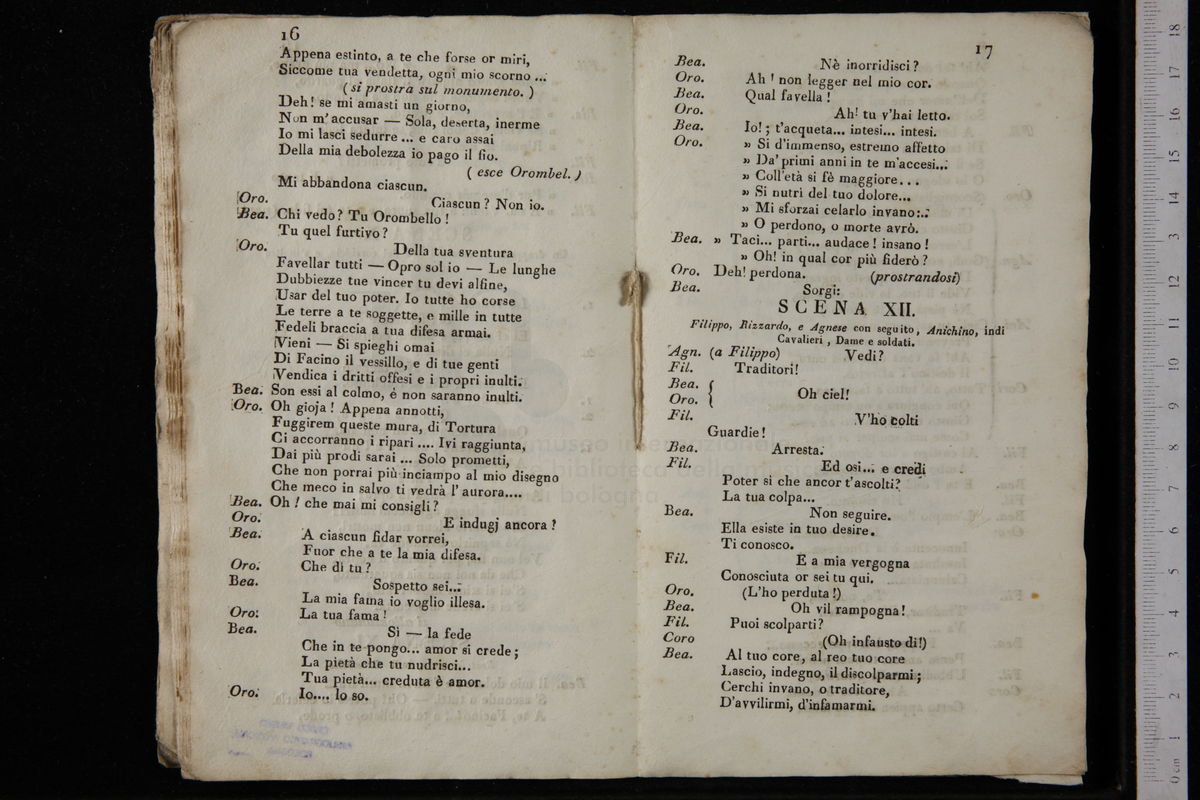 16
Appena estinto, a te che forse or miri,
Siccome tua vendetta, ogni mio scorno ...
( si prostra sul monumento. )
Deh! se mi amasti un giorno,
Non m'accusar — Sola, deserta, inerme
Io mi lasci sedurre ... e caro assai
Della mia debolezza io pago il fio.
( esce Orombel. )
Mi abbandona ciascun.
Oro. Ciascun? Non io.
Bea. Chi vedo? Tu Orombello!
Tu quel furtivo?
Oro. Della tua sventura
Favellar tutti — Opro sol io — Le lunghe
Dubbiezze tue vincer tu devi alfine,
Usar del tuo poter. Io tutte ho corse
Le terre a te soggette, e mille in tutte
Fedeli braccia a tua difesa armai.
Vieni — Si spieghi omai
Di Facino il vessillo, e di tue genti
Vendica i dritti offesi e i propri inulti.
Bea. Son essi al colmo, é non saranno inulti.
Oro. Oh gioja! Appena annotti,
Fuggirem queste mura, di Tortura
Ci accorranno i ripari .... Ivi raggiunta,
Dai più prodi sarai ... Solo prometti,
Che non porrai più inciampo al mio disegno
Che meco in salvo ti vedrà l'aurora....
Bea. Oh! che mai mi consigli?
Oro. E indugj ancora?
Bea. A ciascun fidar vorrei,
Fuor che a te la mia difesa.
Oro. Che di tu?
Bea. Sospetto sei...
La mia fama io voglio illesa.
Oro. La tua fama!
Bea. Sì — la fede
Che in te pongo... amor si crede;
La pietà che tu nudrisci...
Tua pietà... creduta è amor.
Oro. Io.... lo so.
17
Bea. Nè inorridisci?
Oro. Ah! non legger nel mio cor.
Bea. Qual favella!
Oro. Ah! tu v'hai letto.
Bea. Io!; t'acqueta... intesi... intesi.
Oro. » Si d'immenso, estremo affetto
» Da' primi anni in te m'accesi...
» Coll'età si fè maggiore...
» Si nutrì del tuo dolore...
» Mi sforzai celarlo invano...
» O perdono, o morte avrò.
Bea. » Taci... parti... audace! insano!
» Oh! in qual cor più fiderò?
Oro. Deh! perdona. (prostrandosi)
Bea. Sorgi:
SCENA XII.
Filippo, Rizzardo, e Agnese con seguito, Anichino, indi
Cavalieri, Dame e soldati.
Agn. (a Filippo) Vedi?
Fil. Traditori!
Bea. Oro. { Oh ciel!
Fil. V'ho colti
Guardie!
Bea. Arresta.
Fil. Ed osi... e credi
Poter si che ancor t'ascolti?
La tua colpa...
Bea. Non seguire.
Ella esiste in tuo desire.
Ti conosco.
Fil. E a mia vergogna
Conosciuta or sei tu qui.
Oro. (L'ho perduta!)
Bea. Oh vil rampogna!
Fil. Puoi scolparti?
Coro (Oh infausto dì!)
Bea. Al tuo core, al reo tuo core
Lascio, indegno, il discolparmi;
Cerchi invano, o traditore,
D'avvilirmi, d'infamarmi.
museo internazionale
e biblioteca della musica
di bologna